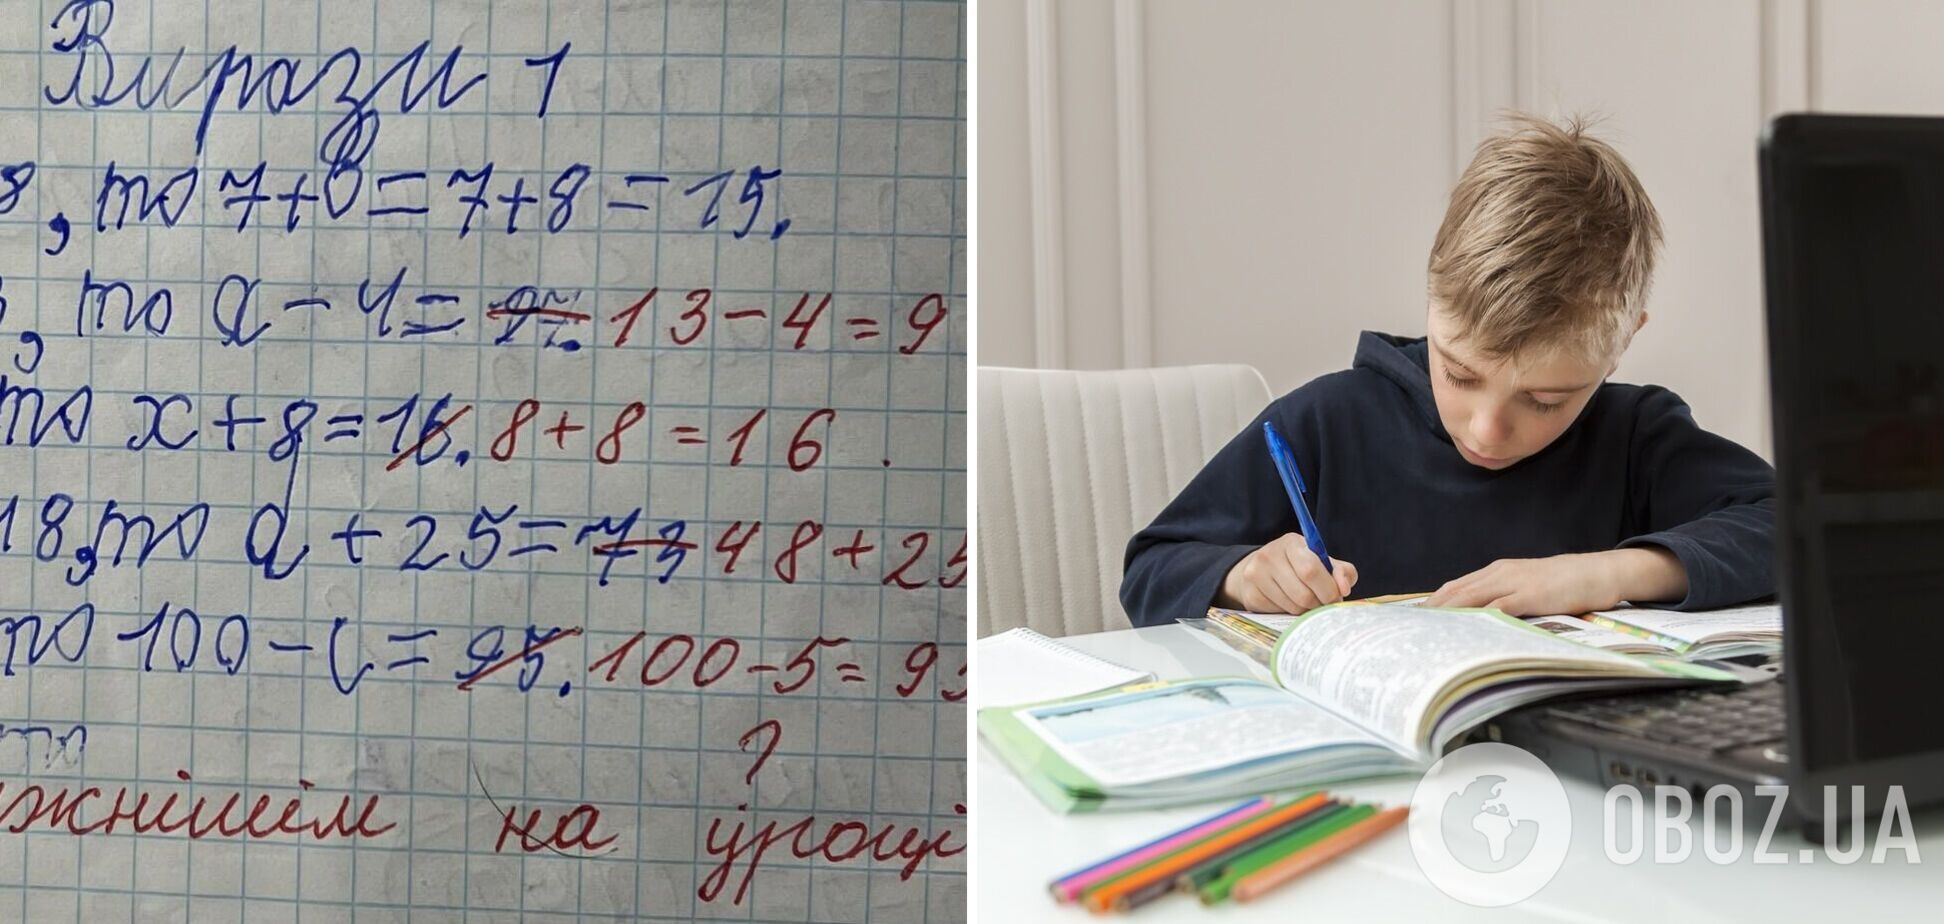 Вирази 1
8, то 7+в=7+8=15.
, то а-4= 97. 13-4=9
то х+8=16. 8+8=16.
18, то а+25=73 48+25
то 100-с=95. 100-5=95
то
?
жнішім на уроці
OBOZ.UA